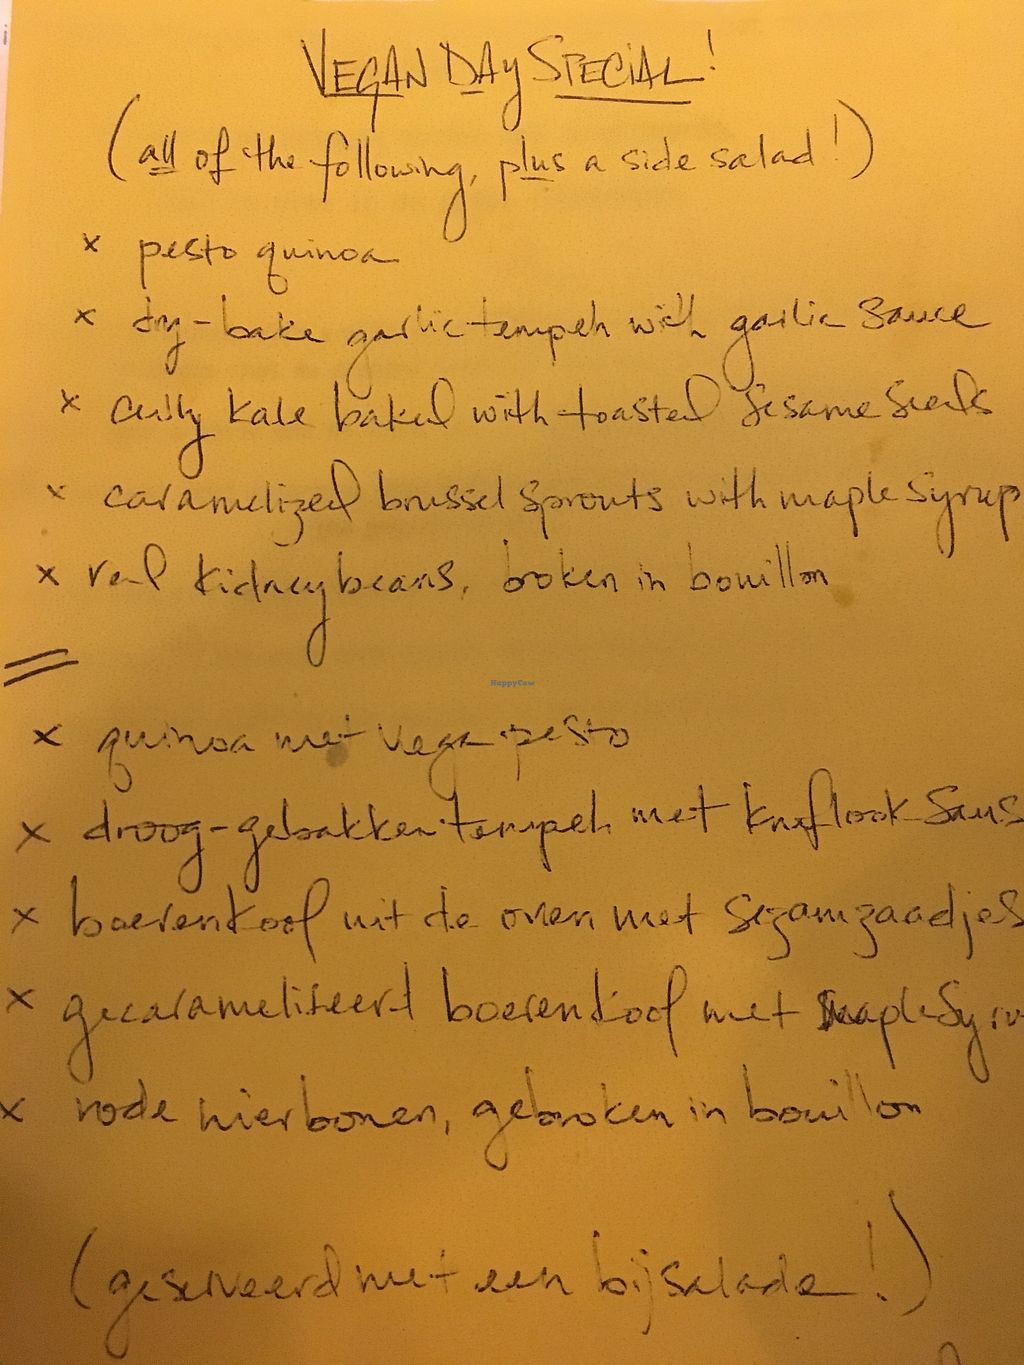 VEGAN DAY SPECIAL!
(all of the following, plus a side salad!)
x pesto quinoa
x dry-bake garlic tempeh with garlic sauce
x curly kale baked with toasted sesame seeds
x caramelized brussel sprouts with maple syrup
x red kidneybeans, broken in bouillon
HappyCow
x quinoa met vega pesto
x droog-gebakken tempeh met knoflook saus
x boerenkool uit de oven met sezamzaadjes
x gecarameliseerd boerenkool met maple syru
x rode nierbonen, gebroken in bouillon
(geserveerd met een bijsalade!)